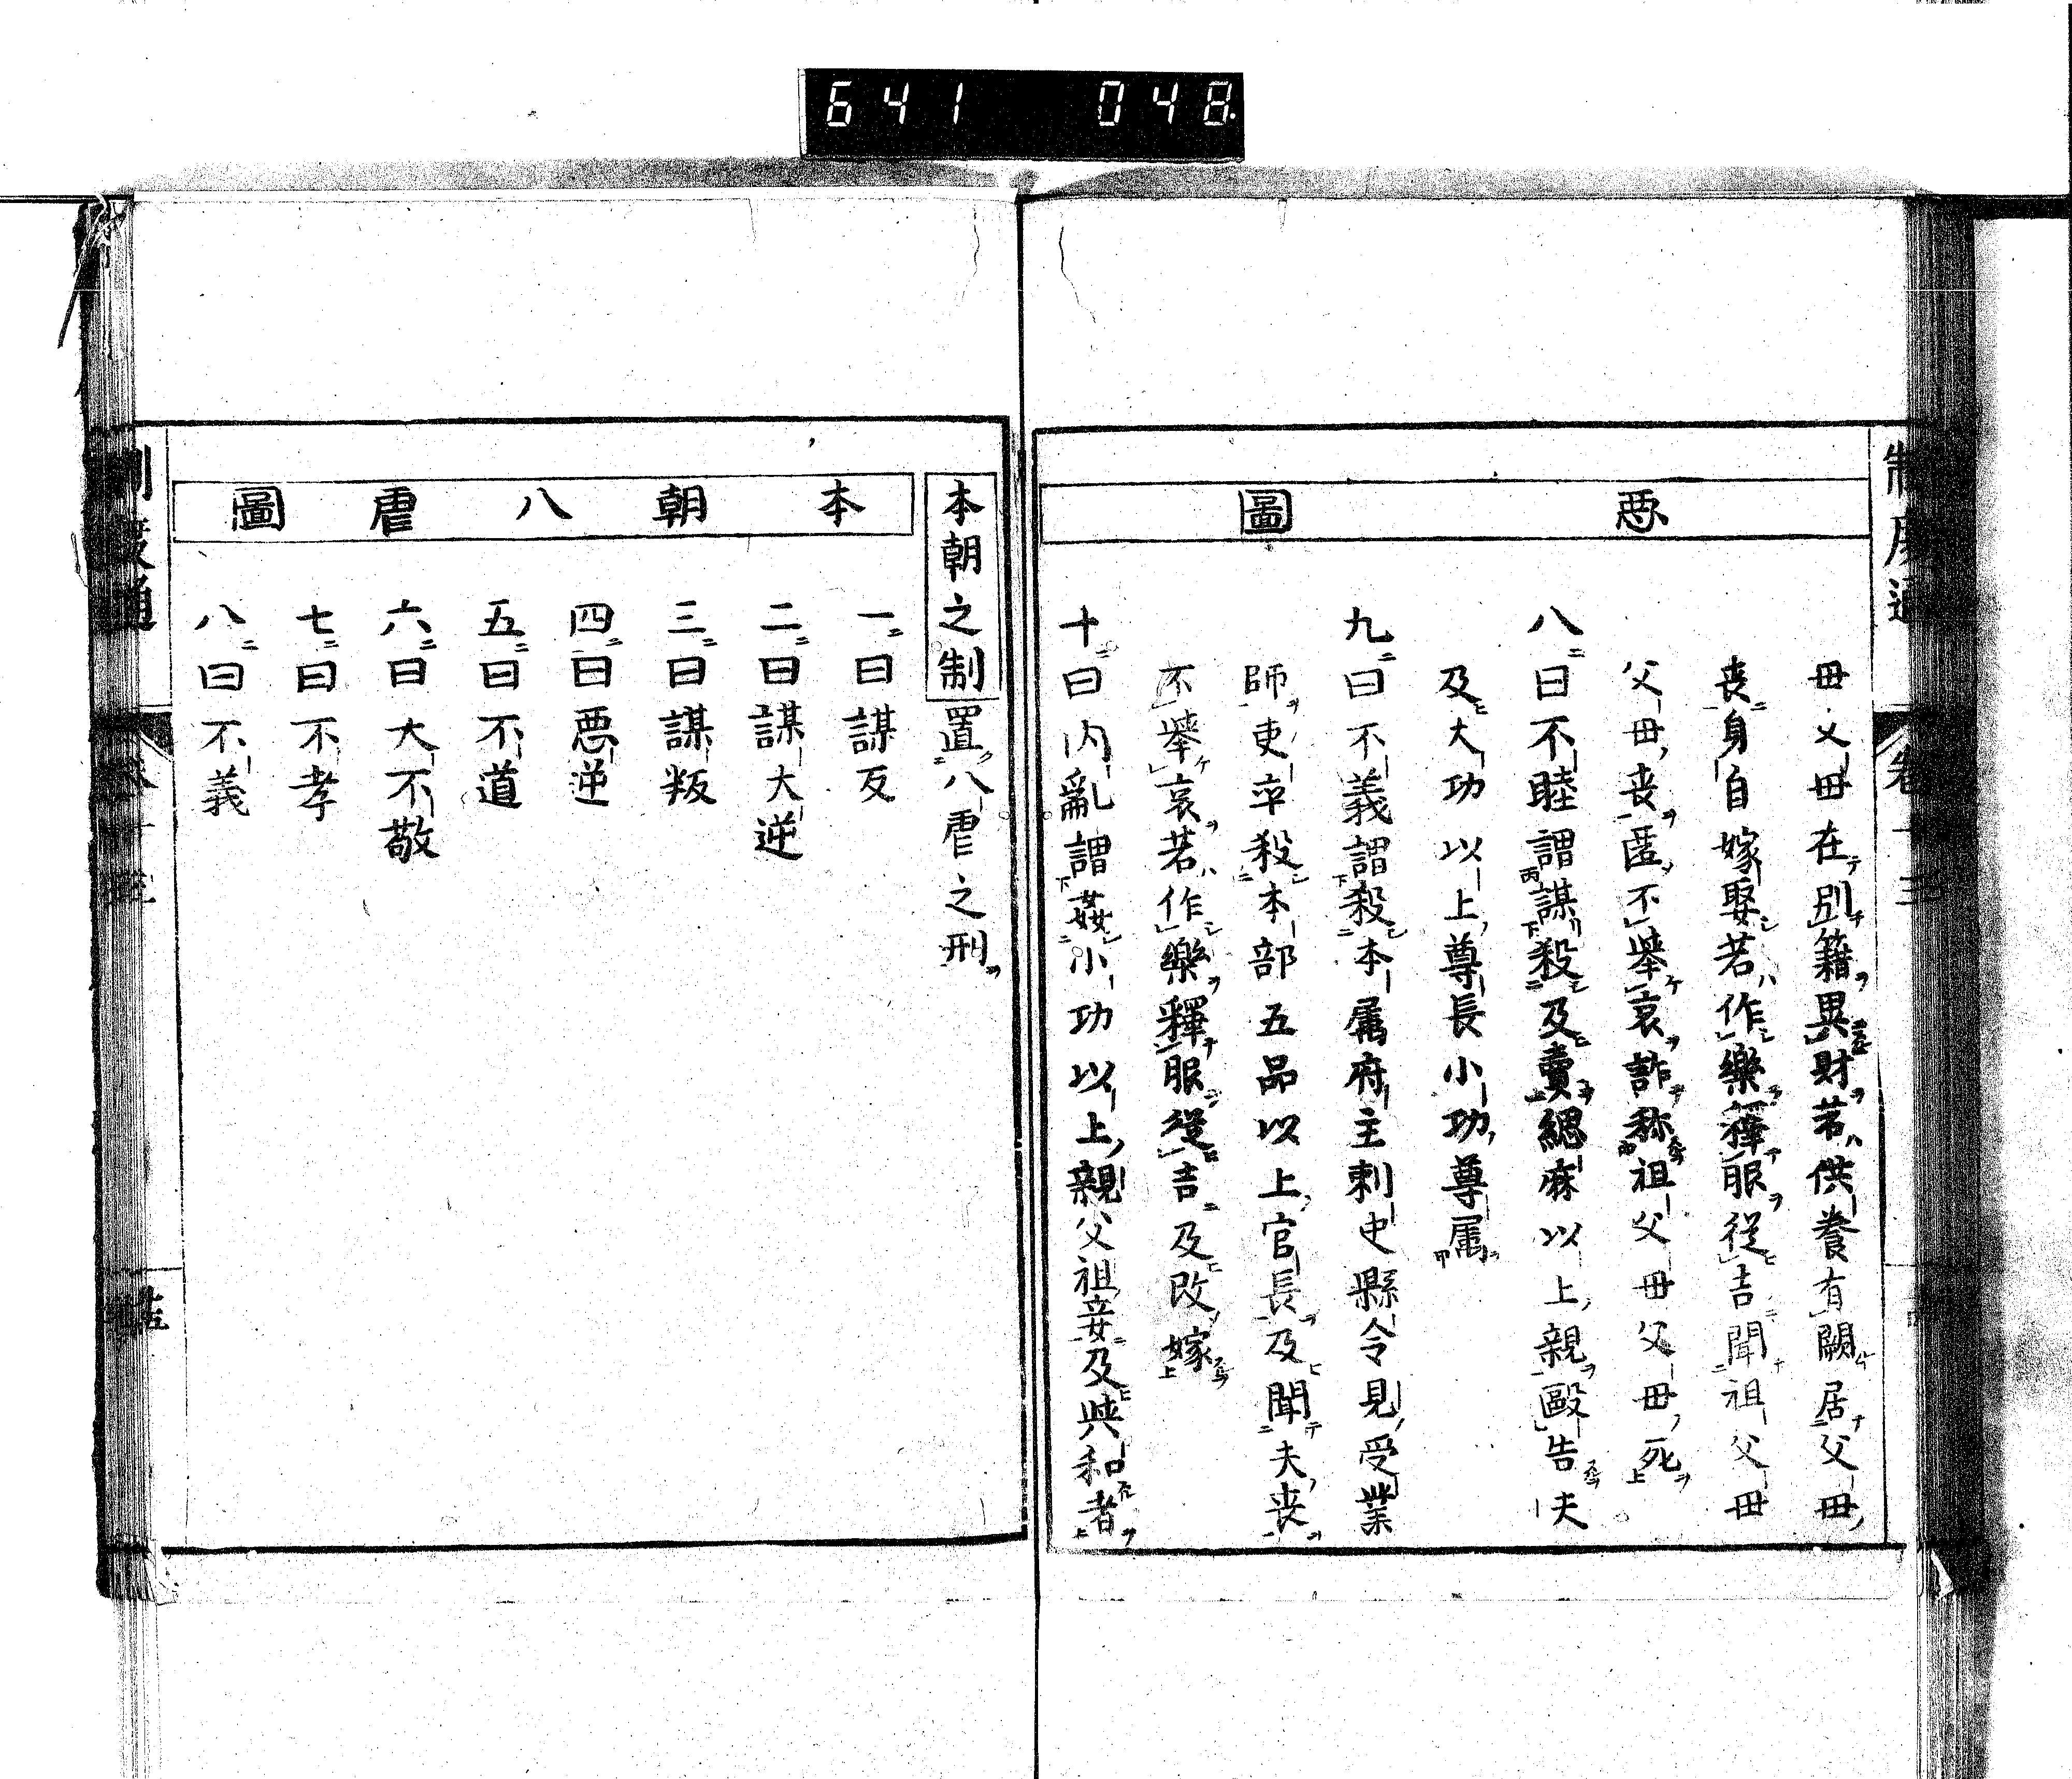 641 048
制度通
卷十三
惡圖
母父母在別籍異財若供養有闕居父母
喪身自嫁娶若作樂釋服從吉聞祖父母
父母喪匿不擧哀詐称祖父母父母死
八曰不睦謂謀殺及賣緦麻以上親毆告夫
及大功以上尊長小功尊属
九曰不義謂殺本属府主刺史縣令見受業
師吏卒殺本部五品以上官長及聞夫喪
不擧哀若作樂釋服從吉及改嫁
十曰内亂謂姦小功以上親父祖妾及與和者
本朝之制置八虐之刑
本朝八虐圖
一曰謀反
二曰謀大逆
三曰謀叛
四曰惡逆
五曰不道
六曰大不敬
七曰不孝
八曰不義
制度通